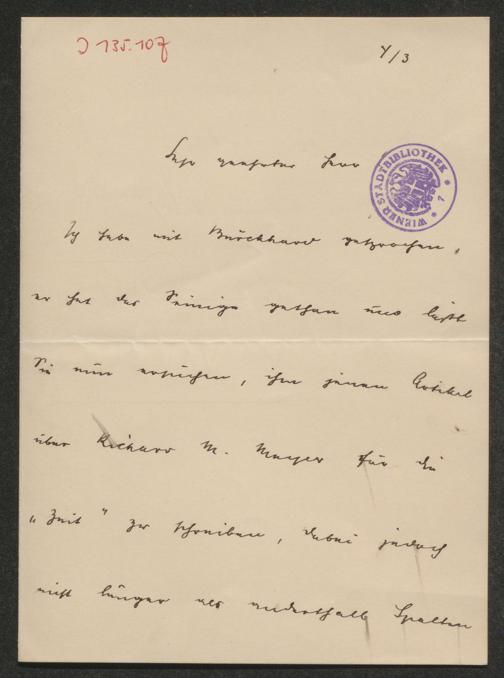 J 135.107
4/3
Sehr geehrter Herr
WIENER STADTBIBLIOTHEK * 7 *
Ich habe mit Burckhard gesprochen,
er hat das Seinige gethan und läßt
Sie nun ersuchen, ihm jenen Artikel
über Richard M. Meyer für die
„Zeit" zu schreiben, dabei jedoch
nicht länger als anderthalb Spalten